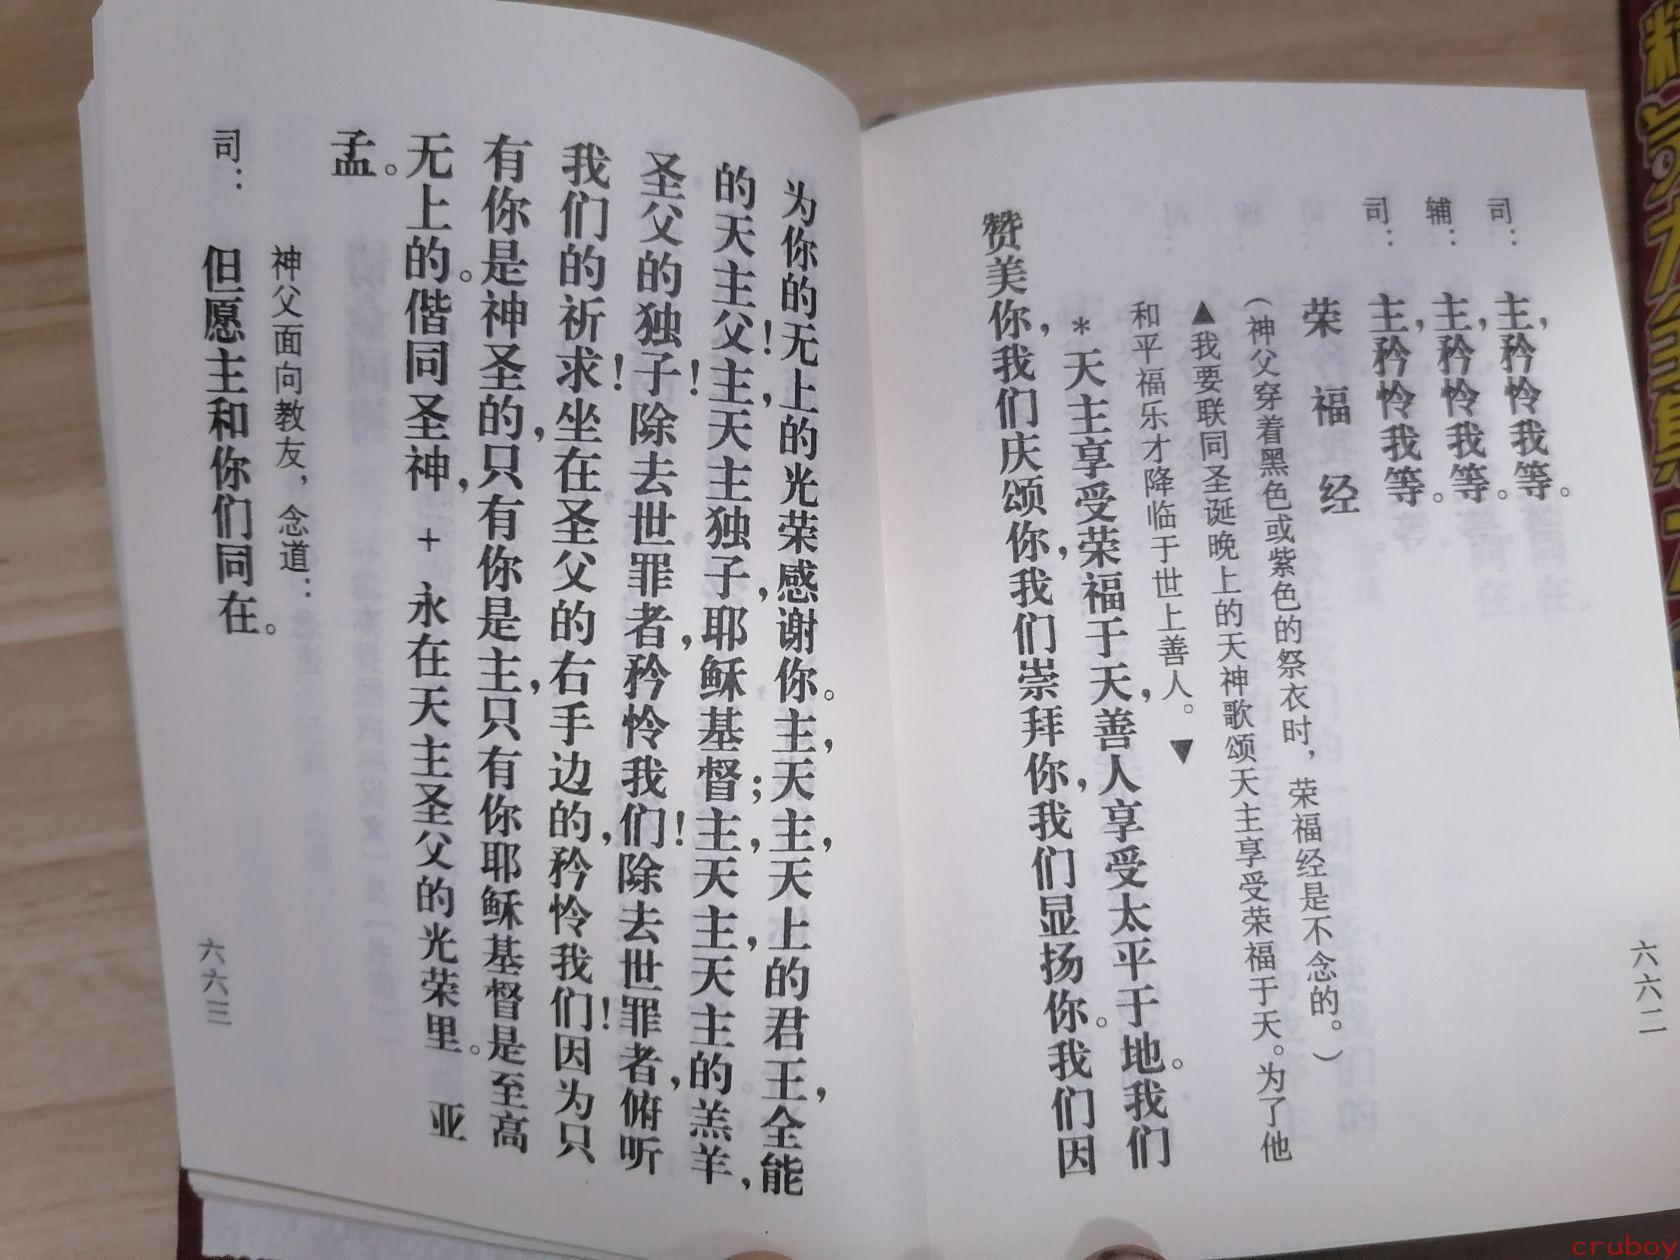 司：主，矜怜我等。
辅：主，矜怜我等。
司：主，矜怜我等。
荣福经
（神父穿着黑色或紫色的祭衣时，荣福经是不念的。）
▲我要联同圣诞晚上的天神歌颂天主享受荣福于天。为了他
和平福乐才降临于世上善人。▼
*天主享受荣福于天，善人享受太平于地。我们
赞美你，我们庆颂你，我们崇拜你，我们显扬你。我们因
六六二
为你的无上的光荣感谢你。主，天主，天上的君王，全能
的天主父！主，天主独子，耶稣基督；主，天主，天主的羔羊，
圣父的独子！除去世罪者，矜怜我们！除去世罪者，俯听
我们的祈求！坐在圣父的右手边的，矜怜我们！因为只
有你是神圣的，只有你是主，只有你耶稣基督是至高
无上的。偕同圣神，+ 永在天主圣父的光荣里。 亚
孟。
神父面向教友，念道：
司：但愿主和你们同在。
六六三
cruboy